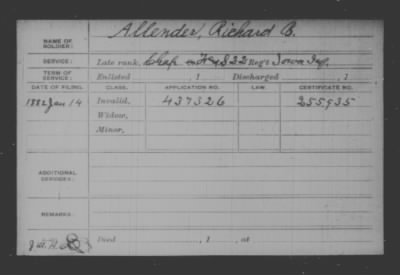 Allender, Richard B.
NAME OF SOLDIER:
SERVICE: Late rank, Chap F & S 22 Reg't Iowa Inf.
TERM OF SERVICE: Enlisted , 1 Discharged , 1
DATE OF FILING. CLASS. APPLICATION NO. LAW. CERTIFICATE NO.
1882 Jan 14 Invalid, 437326 255935
Widow,
Minor,
ADDITIONAL SERVICES:
REMARKS:
Died , 1 , at